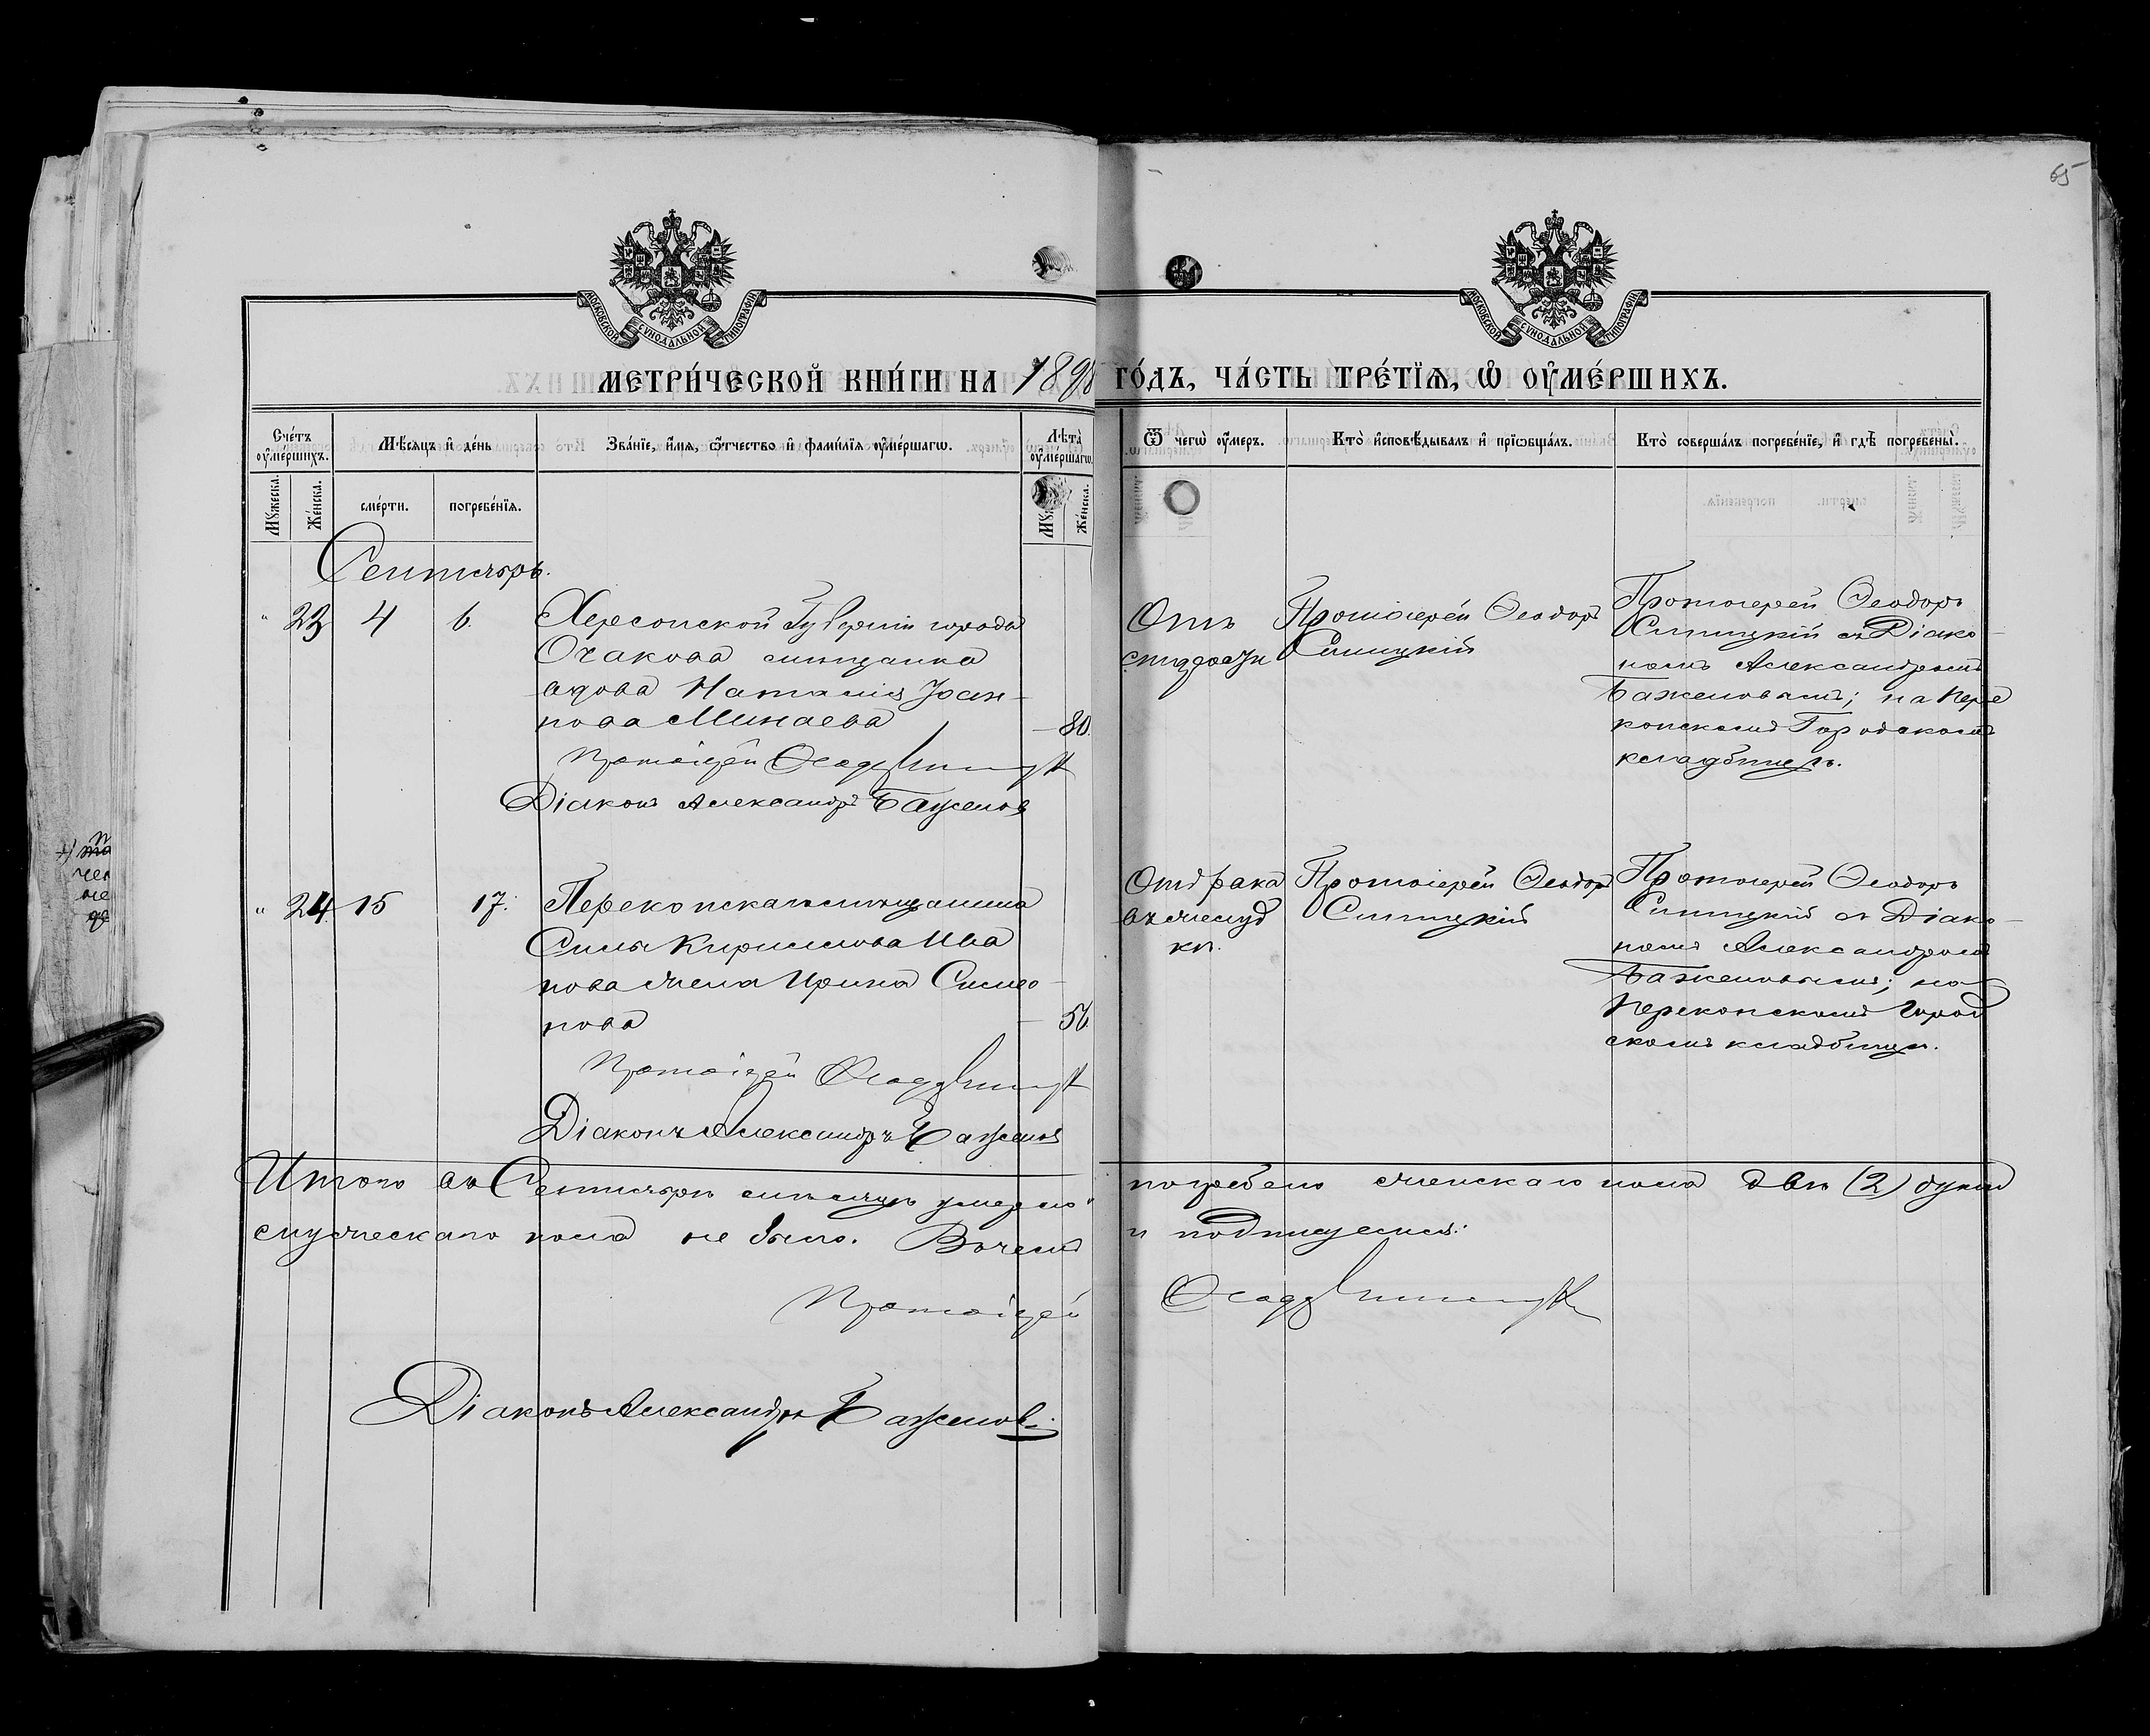 65
МОСКОВСКОЙ СУНОДАЛЬНОЙ ТИПОГРАФІИ
МОСКОВСКОЙ СУНОДАЛЬНОЙ ТИПОГРАФІИ
МЕТРИ́ЧЕСКОЙ КНИ́ГИ НА 1898 ГО́ДЪ, ЧА́СТЬ ТРЕ́ТІѦ, Ѡ ОУ҆МЕ́РШИХЪ.
Сче́тъ оу҆ме́ршихъ.
Мѣ́сяцъ и҆ де́нь
Зва́нїе, и҆́мя, ѻ҆́тчество и҆ фами́лїя оу҆ме́ршагѡ.
Лѣта̀ оу҆ме́ршагѡ.
Ѿ чегѡ̀ оу҆́меръ.
Кто̀ и҆сповѣ́дывалъ и҆ прїѡбща́лъ.
Кто̀ соверша́лъ погребе́нїе, и҆ гдѣ̀ погребены̀.
Мꙋ́жеска.
Же́нска.
сме́рти.
погребе́нїя.
Мꙋ́жеска.
Же́нска.
Сентябрь.
" 23 4 6.
Херсонской Губерніи города
Очакова мѣщанка
вдова Наталія Іоан-
нова Минаева — 80.
Протоіерей Ѳеодоръ Синицкій
Діаконъ Александръ Баженов
Отъ
Протоіерей Ѳеодоръ
Синицкій
Протоіерей Ѳеодоръ
Синицкій съ Діако-
номъ Александромъ
Баженовымъ; на Пере
копскомъ Городскомъ
кладбищѣ.
" 24. 15 17.
Перекопскаго мѣщанина
Симы Кириллова Ива
нова жена Ирина Симео-
нова — 56.
Протоіерей Ѳеодоръ Синицкій
Діаконъ Александръ Баженов
Отъ рака
въ желуд
кѣ.
Протоіерей Ѳеодоръ
Синицкій
Протоіерей Ѳеодоръ
Синицкій съ Діако-
номъ Александромъ
Баженовымъ; на
Перекопскомъ Город
скомъ кладбищѣ.
Итого въ Сентябрѣ мѣсяцѣ умерло и погребено женскаго пола двѣ (2) души
мужескаго пола не было. Въ чемъ и подпишемся:
Протоіерей Ѳеодоръ Синицкій
Діаконъ Александръ Баженовъ.